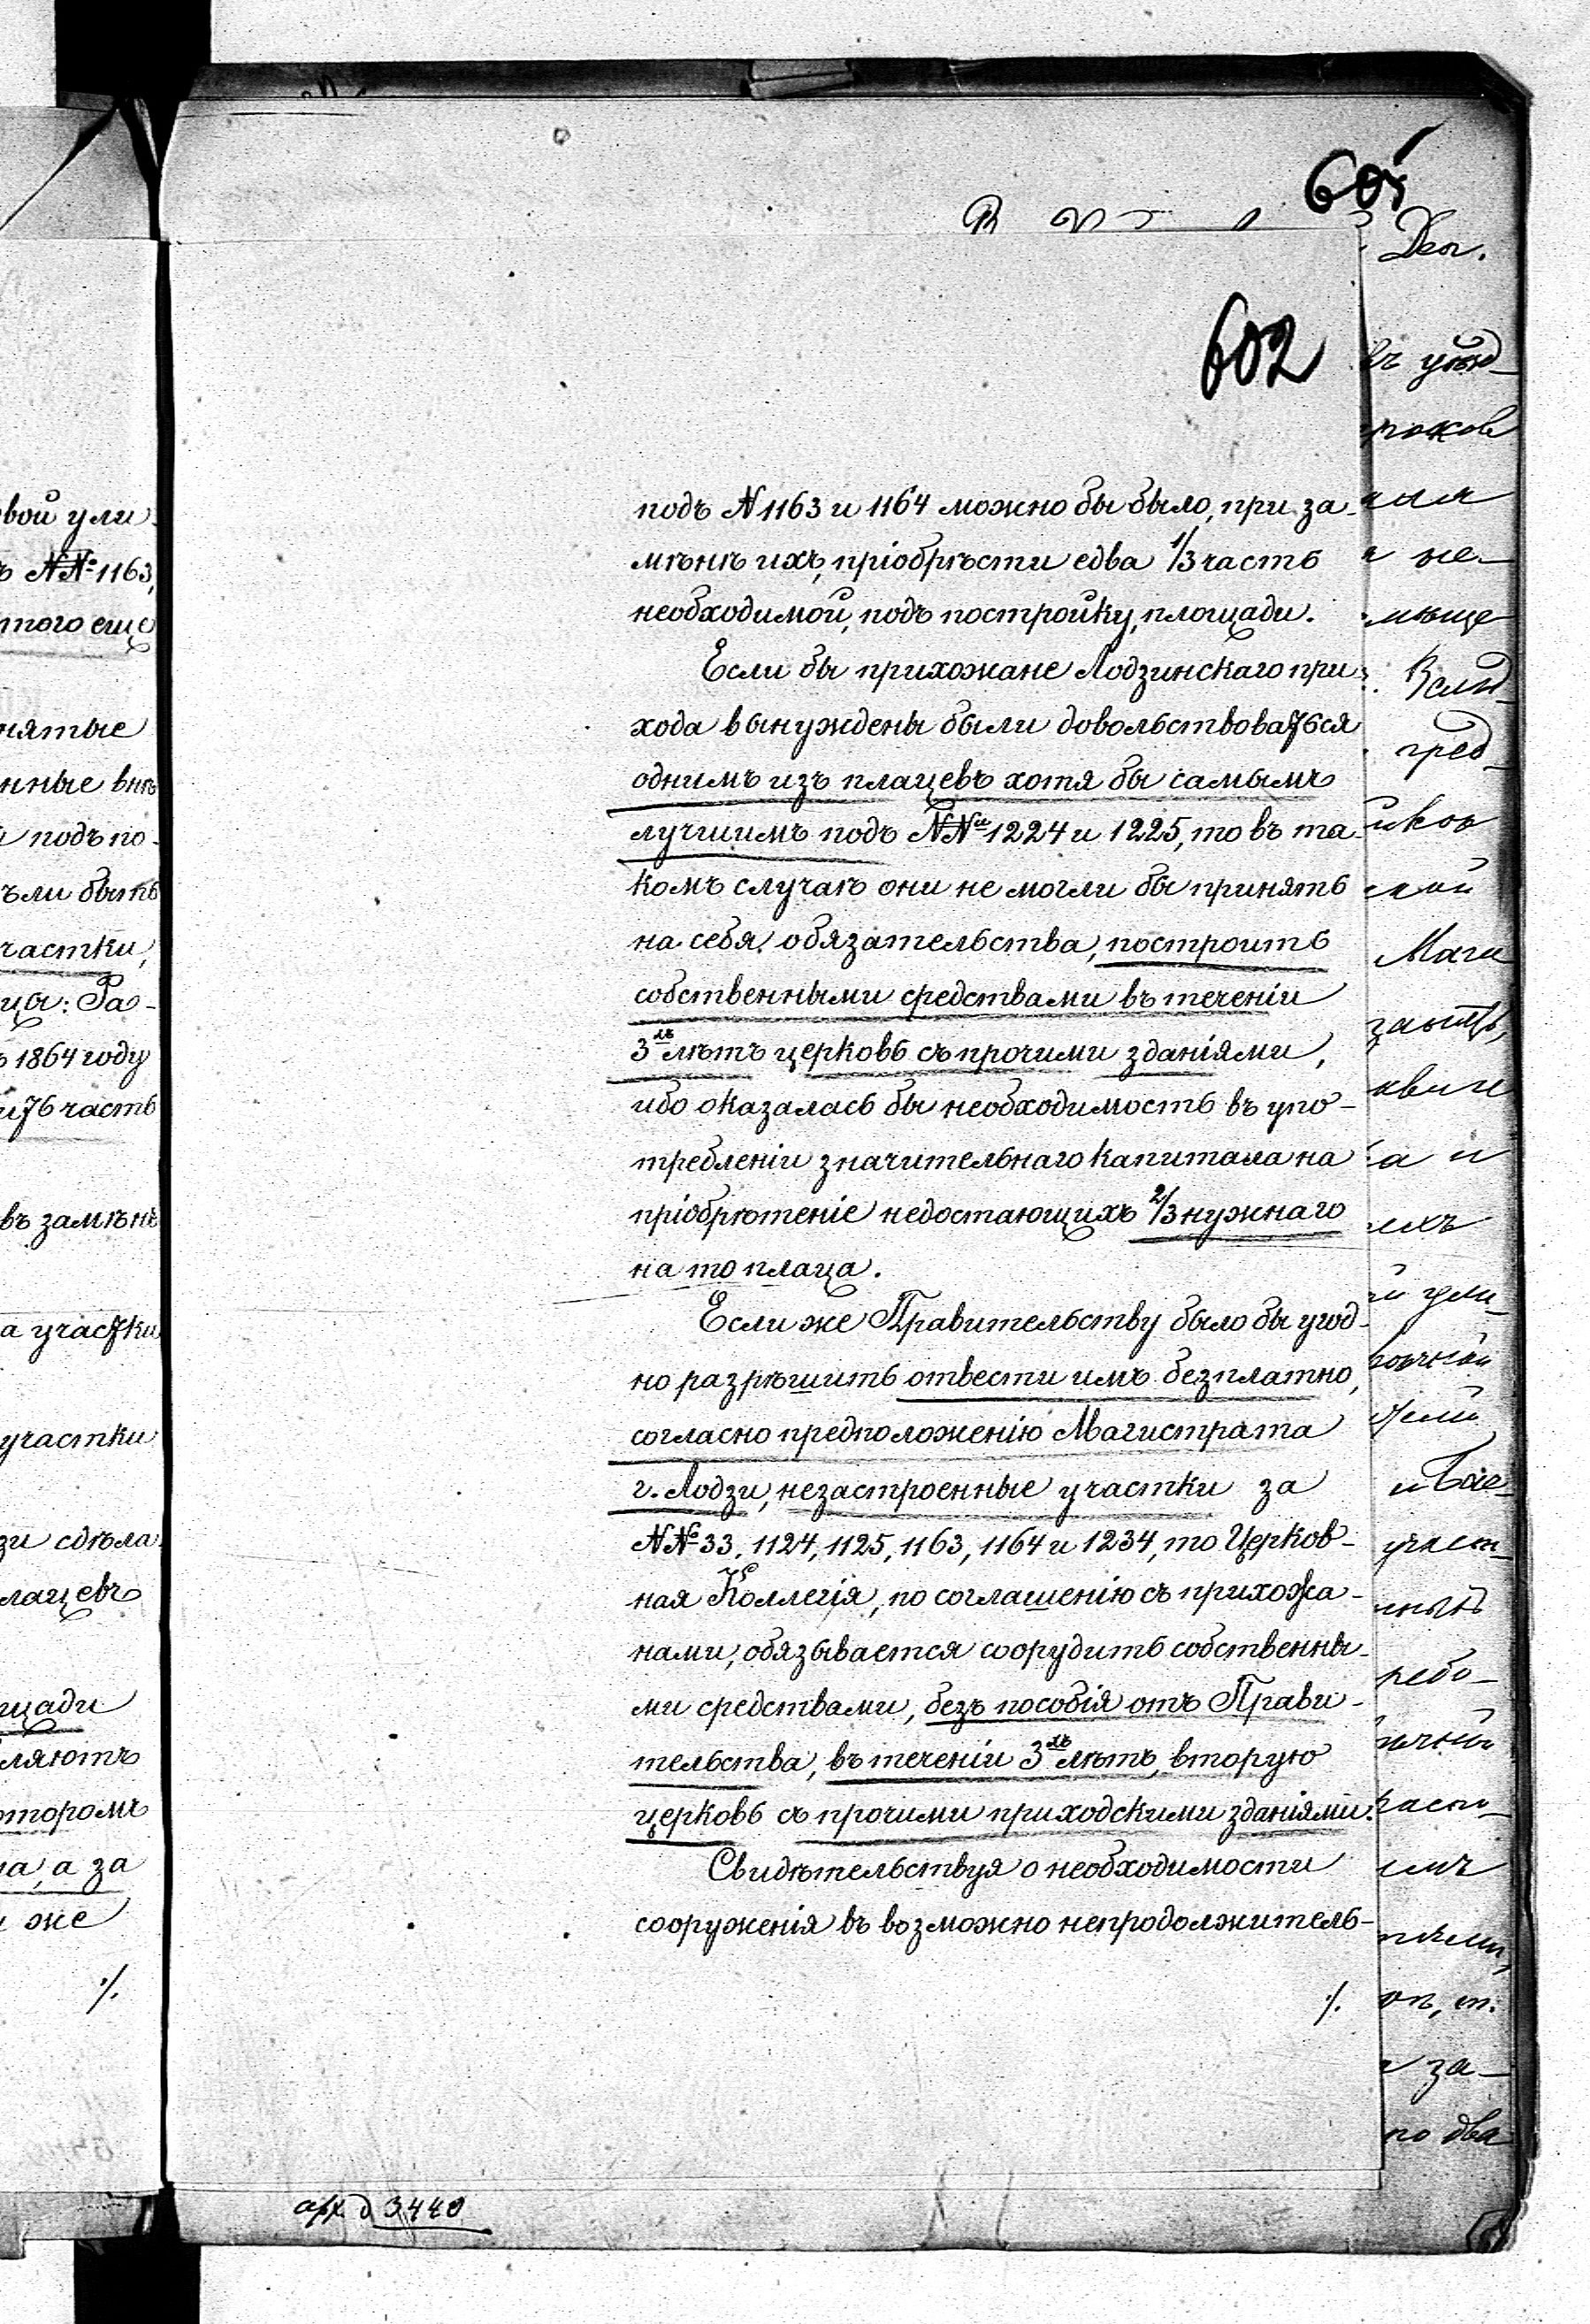 605
602
подъ N 1163 и 1164 можно бы было, при за-
мѣнѣ ихъ, пріобрѣсти едва 1/3 часть
необходимой, подъ постройку, площади.
Если бы прихожане Лодзинскаго при-
хода вынуждены были довольствоваться
однимъ изъ плацевъ хотя бы самымъ
лучшимъ подъ NNи 1224 и 1225, то въ та-
комъ случаѣ они не могли бы принять
на себя обязательства, построить
собственными средствами въ теченіи
3хъ лѣтъ церковь съ прочими зданіями,
ибо оказалась бы необходимость въ упо-
требленіи значительнаго капитала на
пріобрѣтеніе недостающихъ 2/3 нужнаго
на то плаца.
Если же Правительству было бы угод-
но разрѣшить отвести имъ безплатно,
согласно предположенію Магистрата
г. Лодзи, незастроенные участки за
NNо 33, 1124, 1125, 1163, 1164 и 1234, то Церков-
ная Коллегія, по соглашенію съ прихожа-
нами, обязывается соорудить собственны-
ми средствами, безъ пособія отъ Прави-
тельства, въ теченіи 3хъ лѣтъ, вторую
церковь съ прочими приходскими зданіями.
Свидѣтельствуя о необходимости
сооруженія въ возможно непродолжитель-
./.
арх. д 3440
вой ули-
ъ NNо 1163,
того еще
нятые
нные внѣ
и подъ по-
ѣли быть
частки,
цы: Ра-
ъ 1864 году
ить часть
въ замѣнъ
а участки
участки
зи сдѣла
лацевъ
щади
ляютъ
оторомъ
на, а за
и же
./.